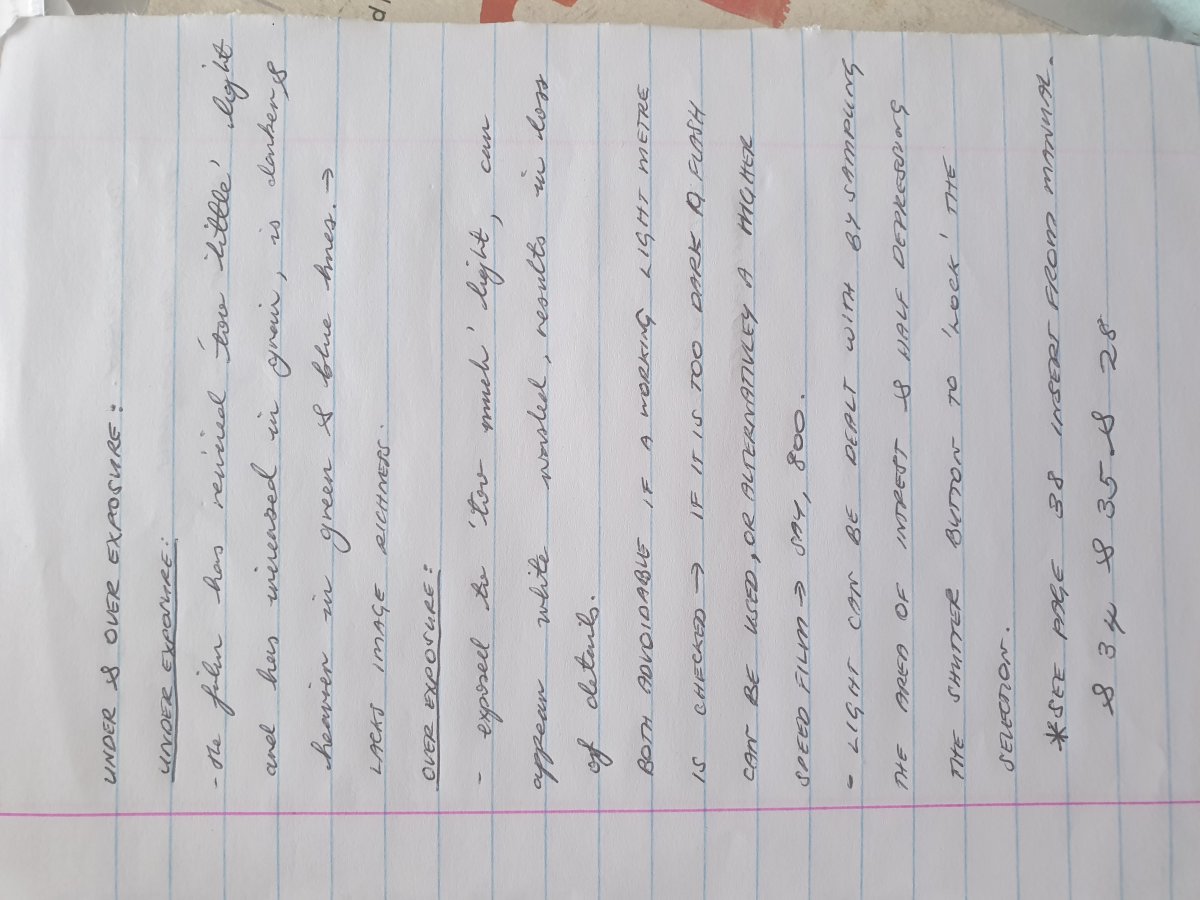 UNDER & OVER EXPOSURE:
UNDER EXPOSURE:
- the film has recived 'too little' light
and has increased in grain, is darker &
heavier in green & blue hues. →
LACKS IMAGE RICHNESS.
OVER EXPOSURE:
- exposed to 'too much' light, can
appear white washed, results in loss
of details.
BOTH ADVOIDABLE IF A WORKING LIGHT METRE
IS CHECKED → IF IT IS TOO DARK A FLASH
CAN BE USED, OR ALTERNATIVLEY A HIGHER
SPEED FILM → SAY, 800.
- LIGHT CAN BE DEALT WITH BY SAMPLING
THE AREA OF INTREST & HALF DEPRESSING
THE SHUTTER BUTTON TO 'LOCK' THE
SELECTION.
*SEE PAGE 38 INSERT FROM MANUAL.
& 34 & 35 & 28